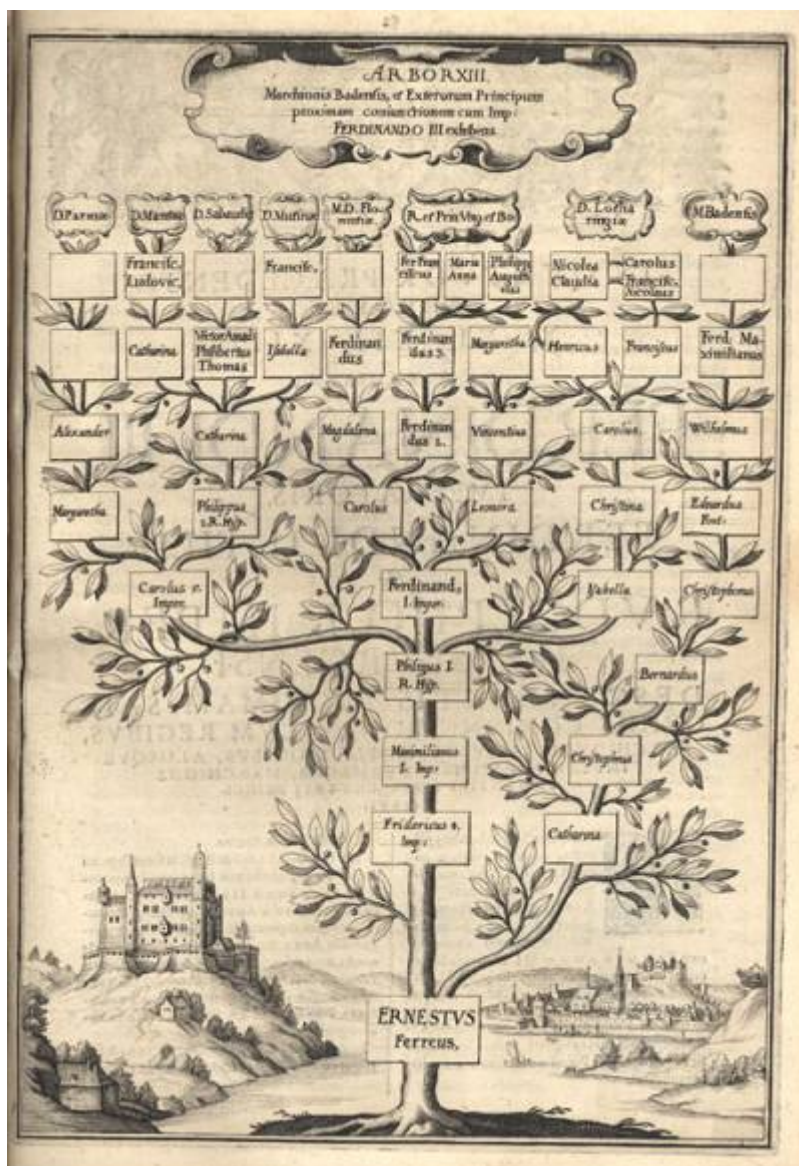 ARBOR XIII.
Marchionis Badensis, et Exterorum Principum
proximam coniunctionem cum Imp:
FERDINANDO III exhibens
D. Parmæ
D. Mantuæ
D. Sabaudiæ
D. Mutinæ
M. D. Flo-
rentiæ
R. et Prin Vng. et Bo.
D. Lotha
ringiæ
M. Badensis
Francisc.
Ludovic.
Francisc.
Fer Fran
ciscus
Maria
Anna
Philipp
August
Nicolea
Claudia
Carolus
Francisc.
Nicolaus
Catharina
Victor Amad:
Philibertus
Thomas
Isabella
Ferdinan
dus
Ferdinan
dus 3.
Margaretha
Henricus
Franciscus
Ferd. Ma-
ximilianus
Alexander
Catharina
Magdalena
Ferdinan
dus 2.
Vincentius
Carolus.
Wilhelmus
Margaretha
Philippus
2. R. Hisp.
Carolus
Leonora
Christina
Eduardus
Fort:
Carolus 5.
Imper:
Ferdinand,
I. Imper.
Isabella
Christophorus
Philippus I.
R. Hisp.
Bernardus
Maximilianus
I. Imp:
Christophorus
Fridericus
Imp:
Catharina
ERNESTVS
Ferreus,